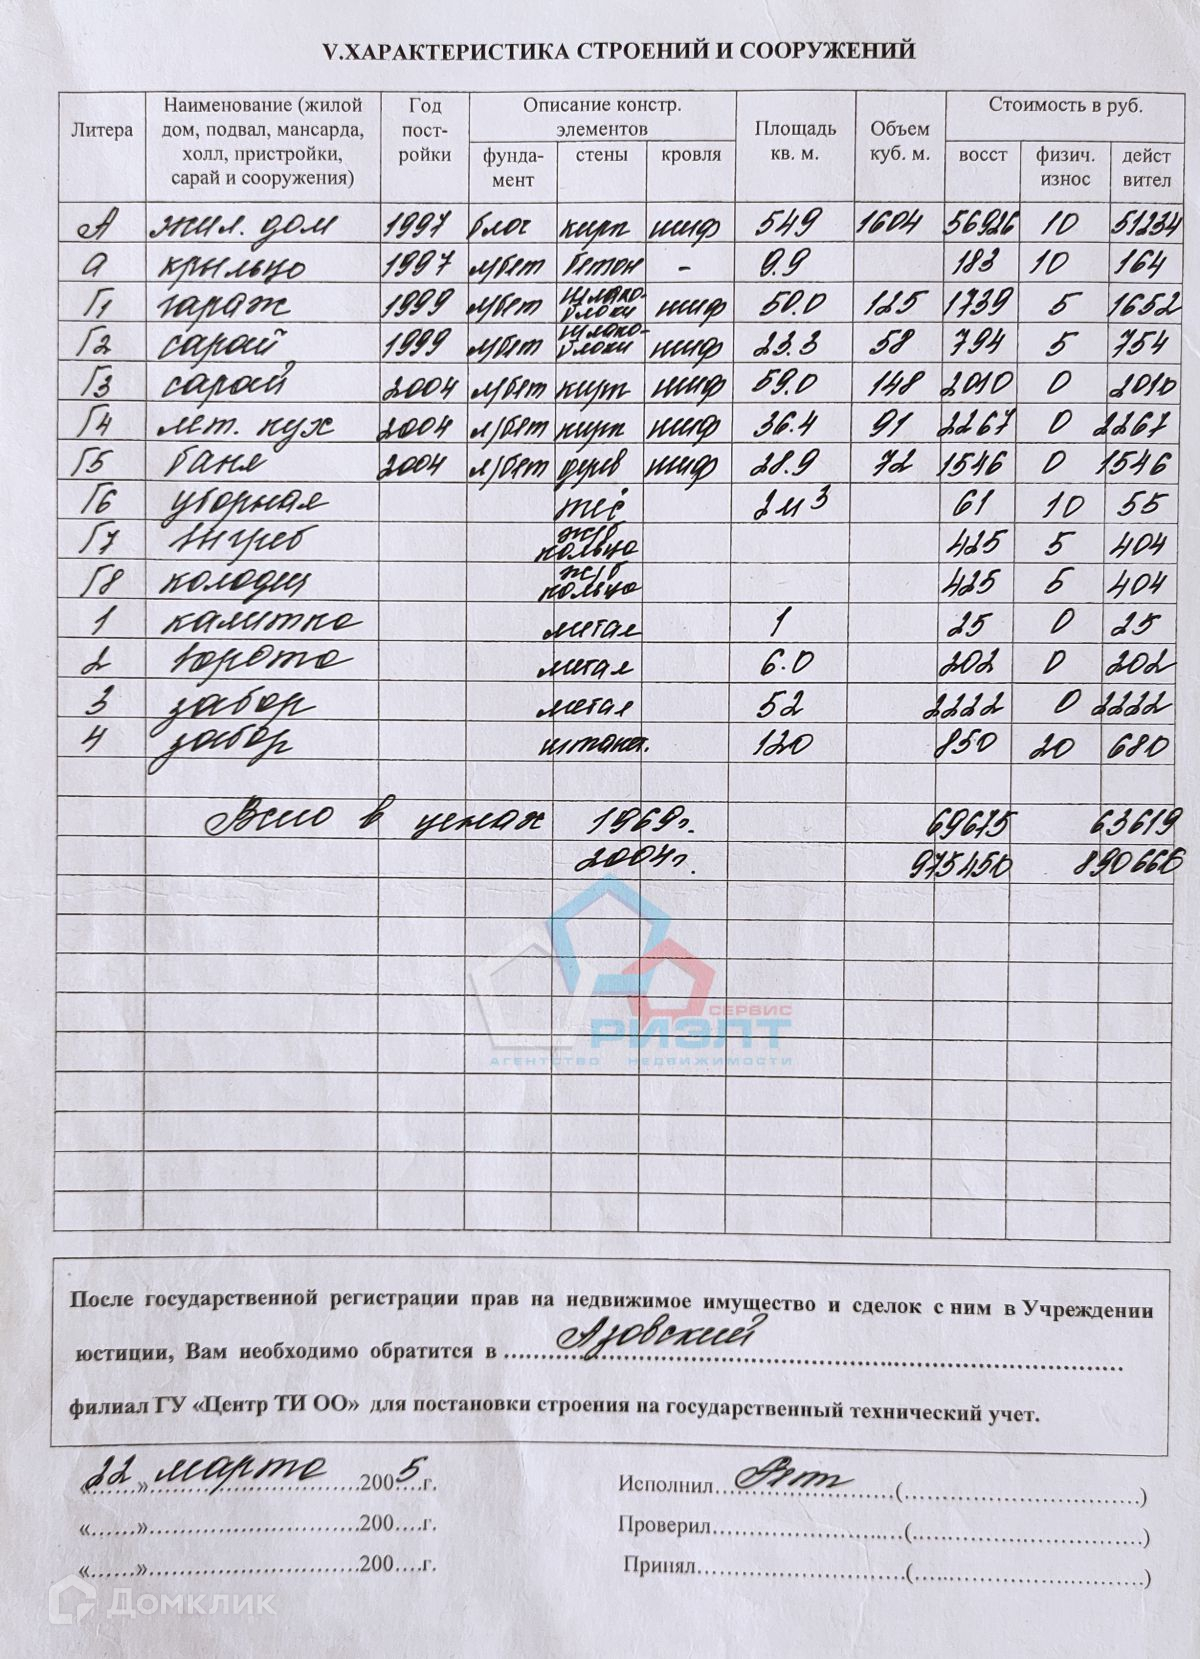 V.ХАРАКТЕРИСТИКА СТРОЕНИЙ И СООРУЖЕНИЙ
Литера Наименование (жилой дом, подвал, мансарда, холл, пристройки, сарай и сооружения) Год пост-ройки Описание констр. элементов Площадь кв. м. Объем куб. м. Стоимость в руб.
фунда-мент стены кровля восст физич. износ дейст вител
А жил. дом 1997 блоч кирп шиф 549 1604 56926 10 51234
а крыльцо 1997 м/бет бетон - 9.9 183 10 164
Г1 гараж 1999 м/бет шлако-блоки шиф 50.0 125 1739 5 1652
Г2 сарай 1999 м/бет шлако-блоки шиф 23.3 58 794 5 754
Г3 сарай 2004 м/бет кирп шиф 59.0 148 2010 0 2010
Г4 лет. кух 2004 л/бет кирп шиф 36.4 91 2267 0 2267
Г5 баня 2004 л/бет дерев шиф 28.9 72 1546 0 1546
Г6 уборная 2м3 61 10 55
Г7 выгреб ж/б кольцо 425 5 404
Г8 колодец ж/б кольцо 425 5 404
1 калитка метал 1 25 0 25
2 ворота метал 6.0 202 0 202
3 забор метал 52 2222 0 2222
4 забор штакет. 120 850 20 680
Всего в ценах 1969г. 69675 63619
2004г. 975450 890666
СЕРВИС
РИЭЛТ
АГЕНТСТВО НЕДВИЖИМОСТИ
После государственной регистрации прав на недвижимое имущество и сделок с ним в Учреждении
юстиции, Вам необходимо обратится в Азовский
филиал ГУ «Центр ТИ ОО» для постановки строения на государственный технический учет.
«22» марта 2005г. Исполнил............(............)
«......»............200....г. Проверил............(............)
«......»............200....г. Принял............(............)
Домклик